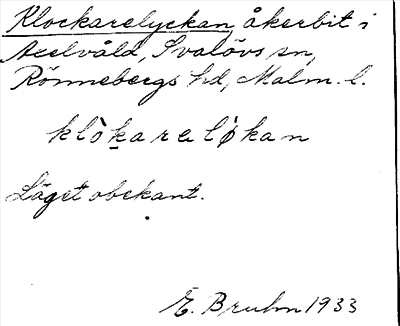 Klockarelyckan, åkerbit i
Axelvåld, Svalövs sn,
Rönnebergs hd, Malm. l.
klò̱karelø̀kan
Läget obekant.
E. Bruhn 1933